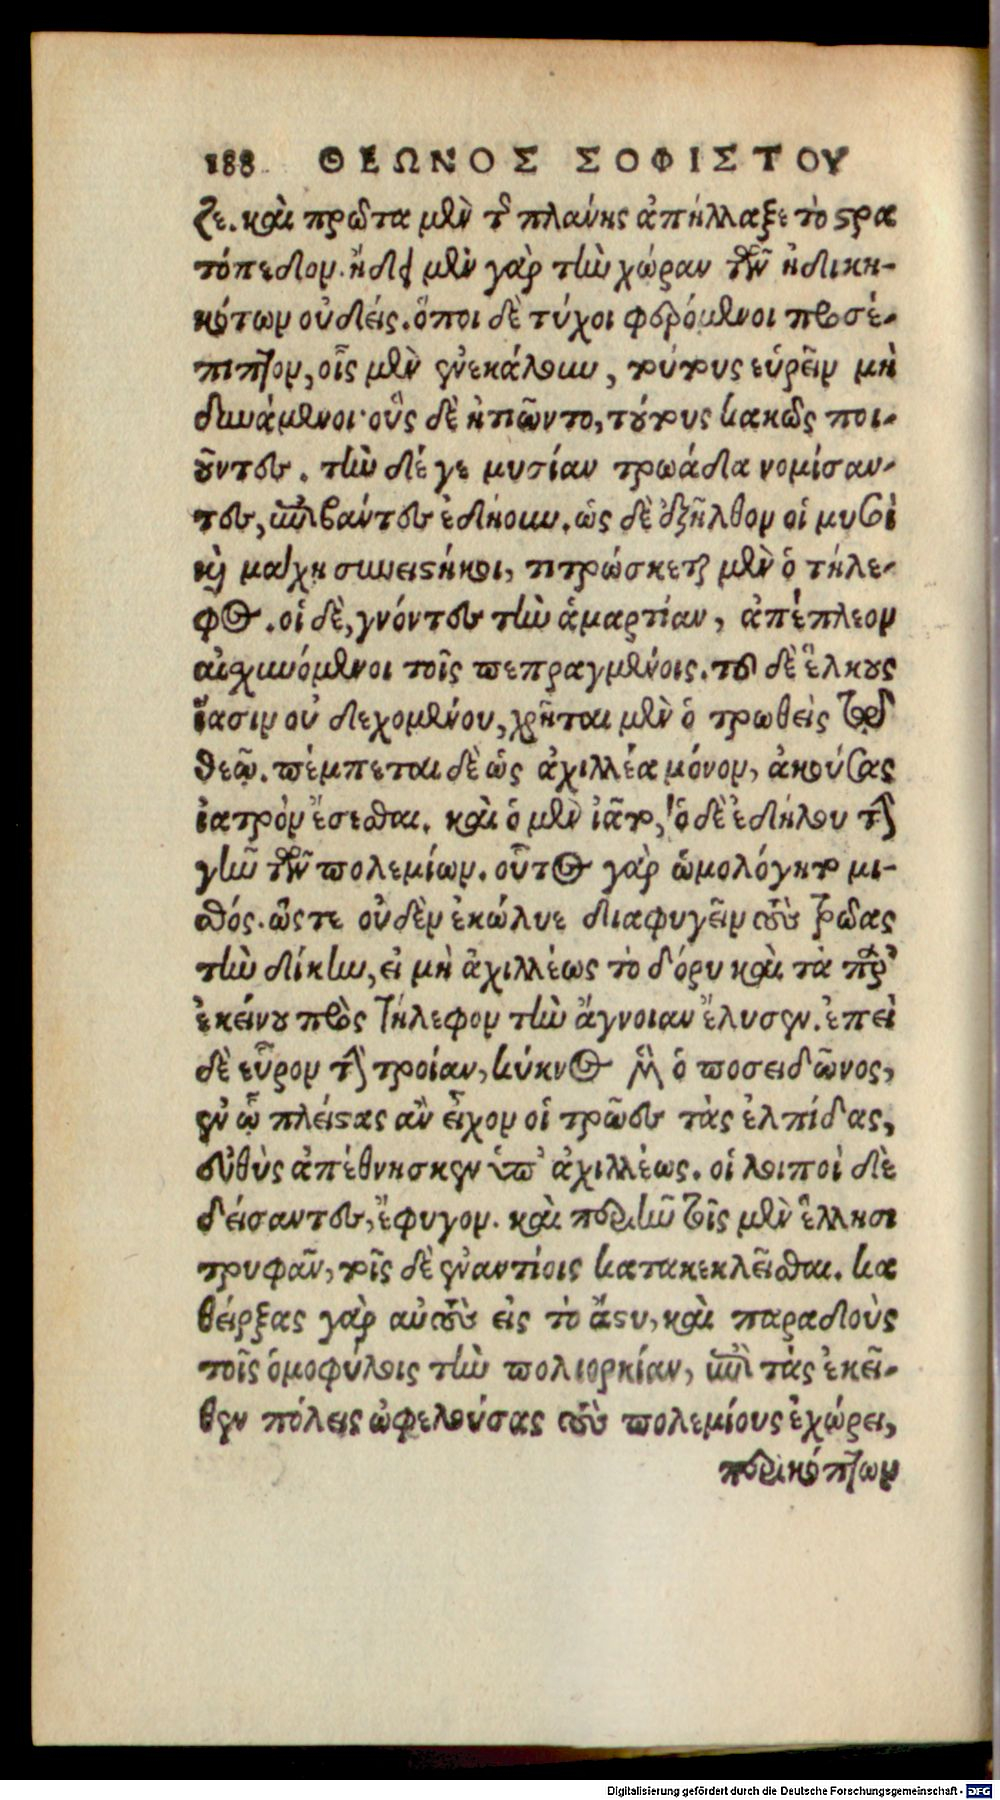 188 ΘΕΩΝΟΣ ΣΟΦΙΣΤΟΥ
ζε. καὶ πρῶτα μὲν τῆς πλάνης ἀπήλλαξε τὸ στρα
τόπεδον. ᾔδει μὲν γὰρ τὴν χώραν τῶν ἠδικη-
κότων οὐδείς. ὅποι δὲ τύχοι φερόμενοι προσέ-
πιπτον, οἷς μὲν ἐνεκάλουν, τούτους εὑρεῖν μὴ
δυνάμενοι· οὓς δὲ ᾐτιῶντο, τούτους κακῶς ποι-
οῦντες. τὴν δέ γε μυσίαν τρωάδα νομίσαν-
τες, ἐπιβάντες ἐδῄουν. ὡς δὲ ἐξῆλθον οἱ μυσοὶ
καὶ μάχη συνειστήκει, τιτρώσκεται μὲν ὁ τήλε-
φος. οἱ δὲ, γνόντες τὴν ἁμαρτίαν, ἀπέπλεον
αἰσχυνόμενοι τοῖς πεπραγμένοις. τοῦ δὲ ἕλκους
ἴασιν οὐ δεχομένου, χρῆται μὲν ὁ τρωθεὶς τῷ
θεῷ. πέμπεται δὲ ὡς ἀχιλλέα μόνον, ἀκούσας
ἰατρὸν ἔσεσθαι. καὶ ὁ μὲν ἰᾶτο, ὁ δὲ ἐδήλου τὴν
γῆν τῶν πολεμίων. οὗτος γὰρ ὡμολόγητο μι-
σθός. ὥστε οὐδὲν ἐκώλυε διαφυγεῖν τοὺς τρῶας
τὴν δίκην, εἰ μὴ ἀχιλλέως τὸ δόρυ καὶ τὰ παρ'
ἐκείνου πρὸς τήλεφον τὴν ἄγνοιαν ἔλυσεν. ἐπεὶ
δὲ εὗρον τὴν τροίαν, κύκνος μὲν ὁ ποσειδῶνος,
ἐν ᾧ πλείστας ἂν εἶχον οἱ τρῶες τὰς ἐλπίδας,
εὐθὺς ἀπέθνησκεν ὑπ' ἀχιλλέως. οἱ λοιποὶ δὲ
δείσαντες, ἔφυγον. καὶ περιῆν τοῖς μὲν ἕλλησι
τρυφᾶν, τοῖς δὲ ἐναντίοις κατακεκλεῖσθαι. κα
θείρξας γὰρ αὐτοὺς εἰς τὸ ἄστυ, καὶ παραδοὺς
τοῖς ὁμοφύλοις τὴν πολιορκίαν, ἐπὶ τὰς ἐκεῖ-
θεν πόλεις ὠφελούσας τοὺς πολεμίους ἐχώρει,
περικόπτων
Digitalisierung gefördert durch die Deutsche Forschungsgemeinschaft - DFG